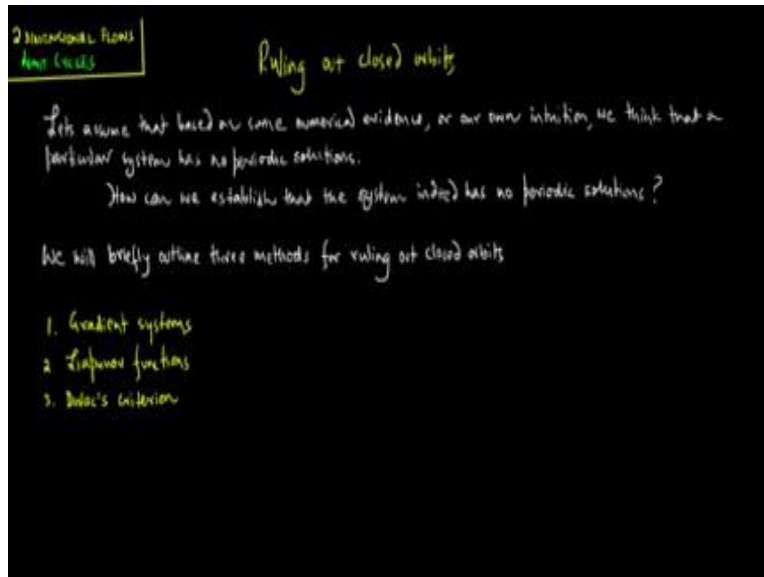 2 DIMENSIONAL FLOWS
LIMIT CYCLES
Ruling out closed orbits
Lets assume that based on some numerical evidence, or our own intuition, we think that a
particular system has no periodic solutions.
How can we establish that the system indeed has no periodic solutions?
We will briefly outline three methods for ruling out closed orbits
1. Gradient systems
2 Liapunov functions
3. Dulac's criterion